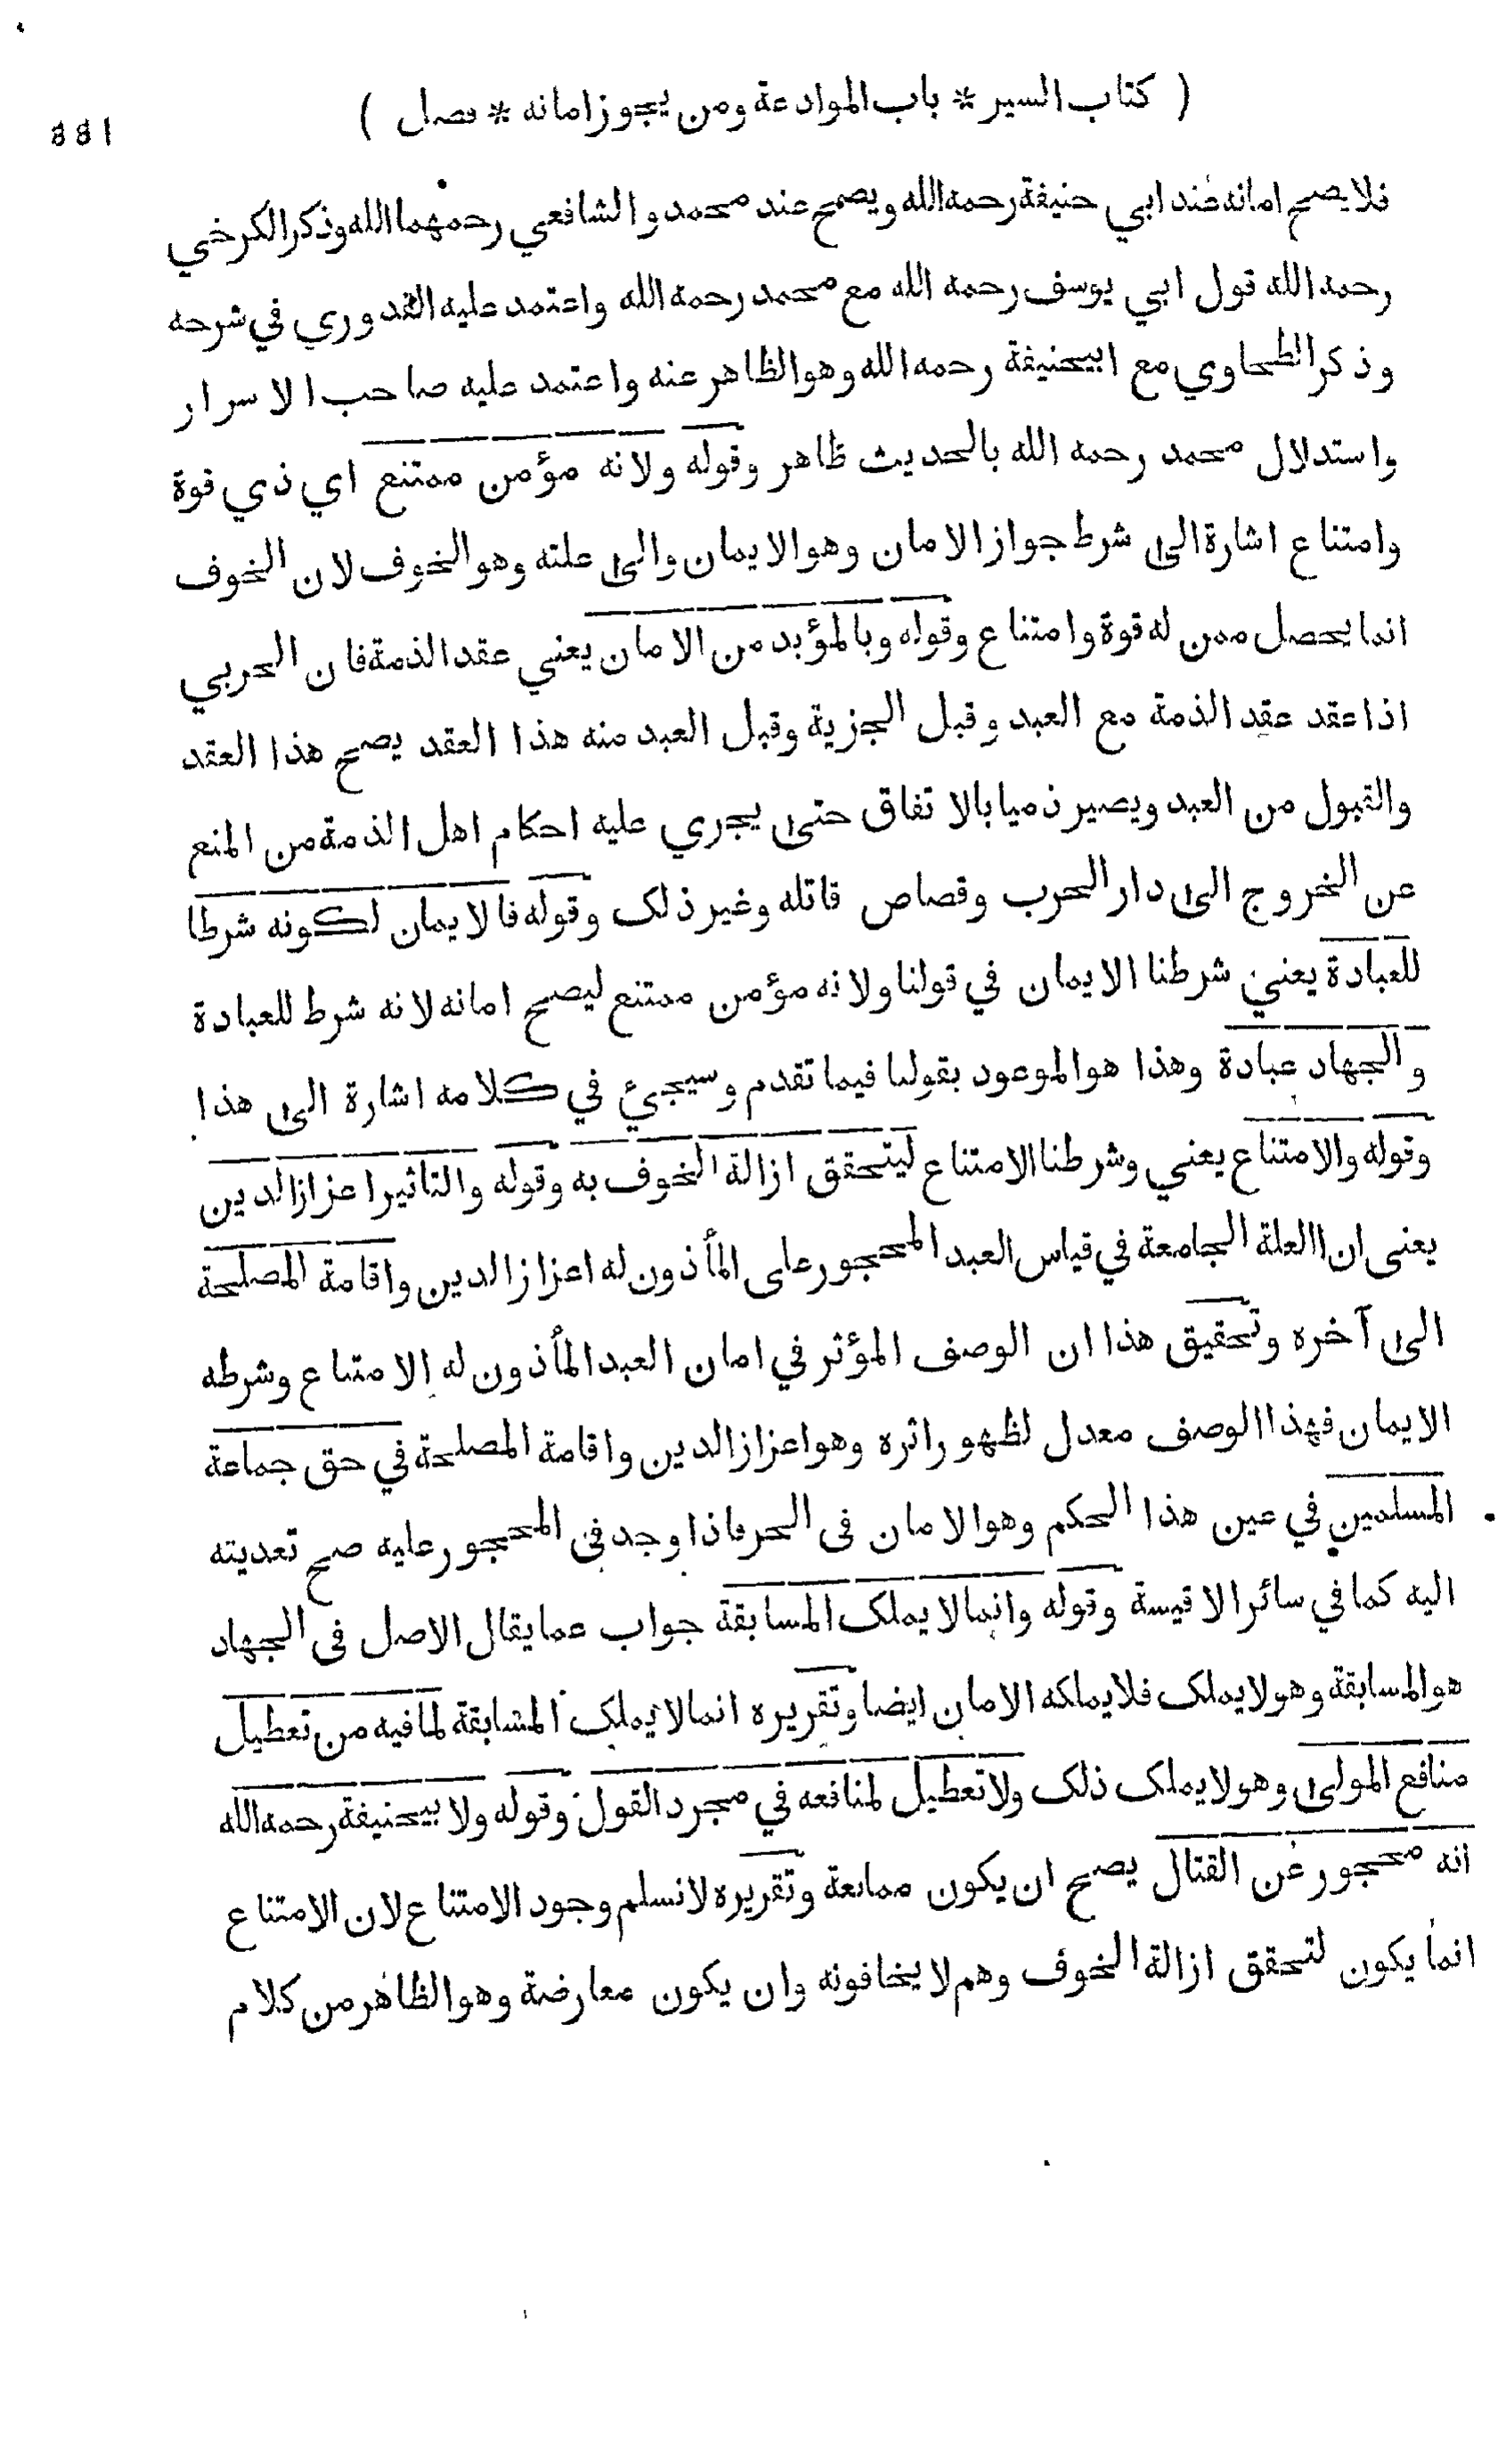 ( كتاب السير * باب الموادعة ومن يجوز امانه * فصل )
فلا يصح امانه عند ابي حنيفة رحمه الله ويصح عند محمد والشافعي رحمهما الله وذكر الكرخي
رحمه الله قول ابي يوسف رحمه الله مع محمد رحمه الله واعتمد عليه القدوري في شرحه
وذكر الطحاوي مع ابيحنيفة رحمه الله وهو الظاهر عنه واعتمد عليه صاحب الاسرار
واستدلال محمد رحمه الله بالحديث ظاهر وقوله ولانه مؤمن ممتنع اي ذي قوة
وامتناع اشارة الى شرط جواز الامان وهو الايمان والى علته وهو الخوف لان الخوف
انما يحصل ممن له قوة وامتناع وقوله وبالمؤبد من الامان يعني عقد الذمة فان الحربي
اذا عقد عقد الذمة مع العبد وقبل الجزية وقبل العبد منه هذا العقد يصح هذا العقد
والقبول من العبد ويصير ذميا بالاتفاق حتى يجري عليه احكام اهل الذمة من المنع
عن الخروج الى دار الحرب وقصاص قاتله وغير ذلک وقوله فالايمان لكونه شرطا
للعبادة يعني شرطنا الايمان في قولنا ولانه مؤمن ممتنع ليصح امانه لانه شرط للعبادة
والجهاد عبادة وهذا هو الموعود بقولنا فيما تقدم وسيجئ في كلامه اشارة الى هذا
وقوله والامتناع يعني وشرطنا الامتناع ليتحقق ازالة الخوف به وقوله والتاثير اعزاز الدين
يعنى ان العلة الجامعة في قياس العبد المحجور على المأذون له اعزاز الدين واقامة المصلحة
الى آخره وتحقيق هذا ان الوصف المؤثر في امان العبد المأذون له الامتناع وشرطه
الايمان فهذا الوصف معدل لظهور اثره وهو اعزاز الدين واقامة المصلحة في حق جماعة
المسلمين في عين هذا الحكم وهو الامان فى الحر فاذا وجد في المحجور عليه صح تعديته
اليه كما في سائر الاقيسة وقوله وانما لا يملک المسابقة جواب عما يقال الاصل فى الجهاد
هو المسابقة وهو لا يملک فلا يملكه الامان ايضا وتقريره انما لا يملک المسابقة لما فيه من تعطيل
منافع المولى وهو لا يملک ذلک ولا تعطيل لمنافعه في مجرد القول وقوله ولا بيحنيفة رحمه الله
انه محجور عن القتال يصح ان يكون ممانعة وتقريره لا نسلم وجود الامتناع لان الامتناع
انما يكون لتحقق ازالة الخوف وهم لا يخافونه وان يكون معارضة وهو الظاهر من كلام